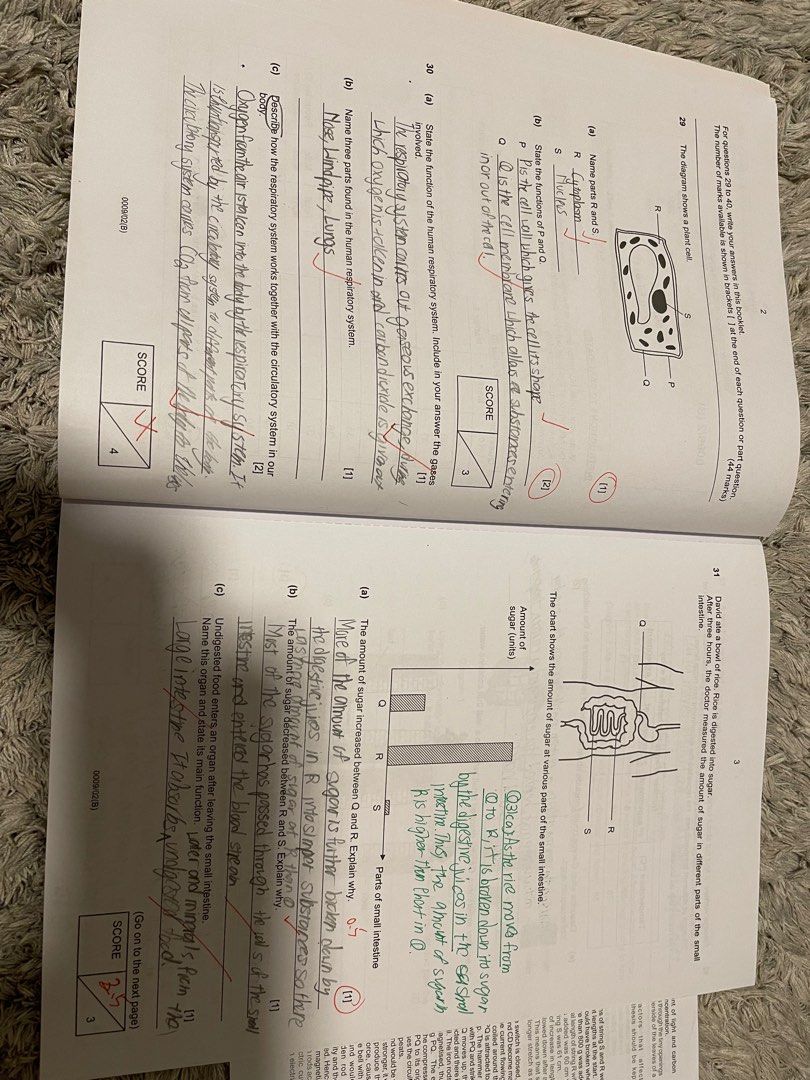 2
For questions 29 to 40, write your answers in this booklet.
The number of marks available is shown in brackets [ ] at the end of each question or part question.
(44 marks)
29 The diagram shows a plant cell.
R
S
P
Q
(a) Name parts R and S.
R Cytoplasm
S Nucleus
[1]
(b) State the functions of P and Q.
P P is the cell wall which gives the cell its shape
Q Q is the cell membrane which allows substances entering
in or out of the cell.
[2]
SCORE
3
30 (a) State the function of the human respiratory system. Include in your answer the gases
involved.
[1]
The respiratory system carries out gaseous exchange
which oxygen is taken in and carbon dioxide is given out
(b) Name three parts found in the human respiratory system.
[1]
Nose, Windpipe, Lungs
(c) Describe how the respiratory system works together with the circulatory system in our
body.
[2]
Oxygen from the air is taken into the body by the respiratory system. It
is transported by the circulatory system to different parts of the body.
The circulatory system carries CO2 from all parts of the body to the
SCORE
4
4
0009/02(B)
3
31 David ate a bowl of rice. Rice is digested into sugar.
After three hours, the doctor measured the amount of sugar in different parts of the small
intestine.
Q
R
S
The chart shows the amount of sugar at various parts of the small intestine.
Amount of
sugar (units)
Q R S
Parts of small intestine
Q31ca) As the rice moves from
Q to R, it is broken down into sugar
by the digestive juices in the small
intestine. Thus, the amount of sugar in
R is higher than that in Q.
(a) The amount of sugar increased between Q and R. Explain why.
0.5
[1]
More of the amount of sugar is further broken down by
the digestive juices in R into simpler substances so there
is a more amount of sugar at R than Q
(b) The amount of sugar decreased between R and S. Explain why.
[1]
Most of the sugar has passed through the walls of the small
intestine and entered the blood stream
(c) Undigested food enters an organ after leaving the small intestine.
Name this organ and state its main function.
[1]
Large intestine. It absorbs water and minerals from the
undigested food.
(Go on to the next page)
SCORE
2.5
3
0009/02(B)